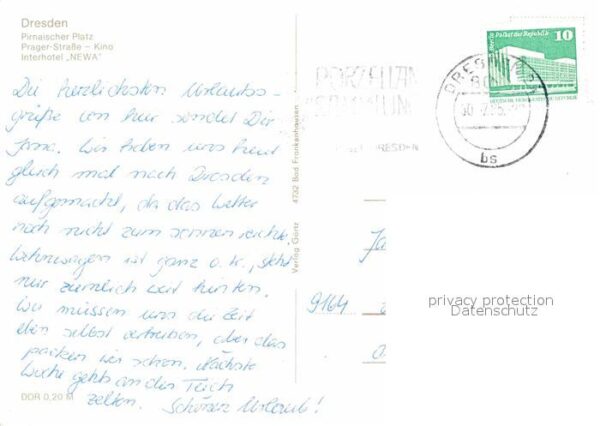 Dresden
Pirnaischer Platz
Prager-Straße – Kino
Interhotel „NEWA"
Die herzlichsten Urlaubs-
grüße von hier sendet Dir
Jana. Wir haben uns heut
gleich mal nach Dresden
aufgemacht, da das Wetter
noch nicht zum sonnen reichte.
Wohnwagen ist ganz o.k., steht
nur ziemlich weit hinten.
Wir müssen uns die Zeit
eben selbst vertreiben, aber das
packen wir schon. Nächste
Woche gehts an den Teich
zelten. Schönen Urlaub!
DDR 0,20 M
Verlag Görtz 4732 Bad Frankenhausen
Berlin Palast der Republik
10
PORZELLAN
SAMMLUNG
DRESDEN
DRESDEN
bs
9164
privacy protection
Datenschutz